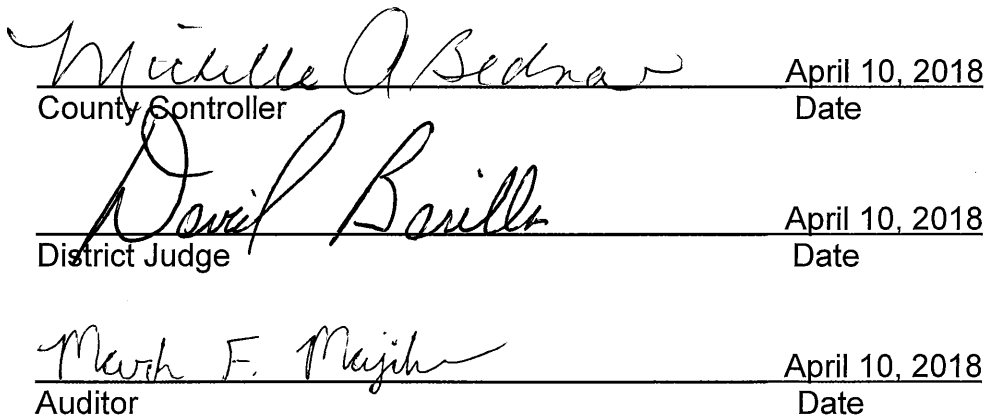 Michelle A Bednar April 10, 2018
County Controller Date
David Barilla April 10, 2018
District Judge Date
Mark F. April 10, 2018
Auditor Date